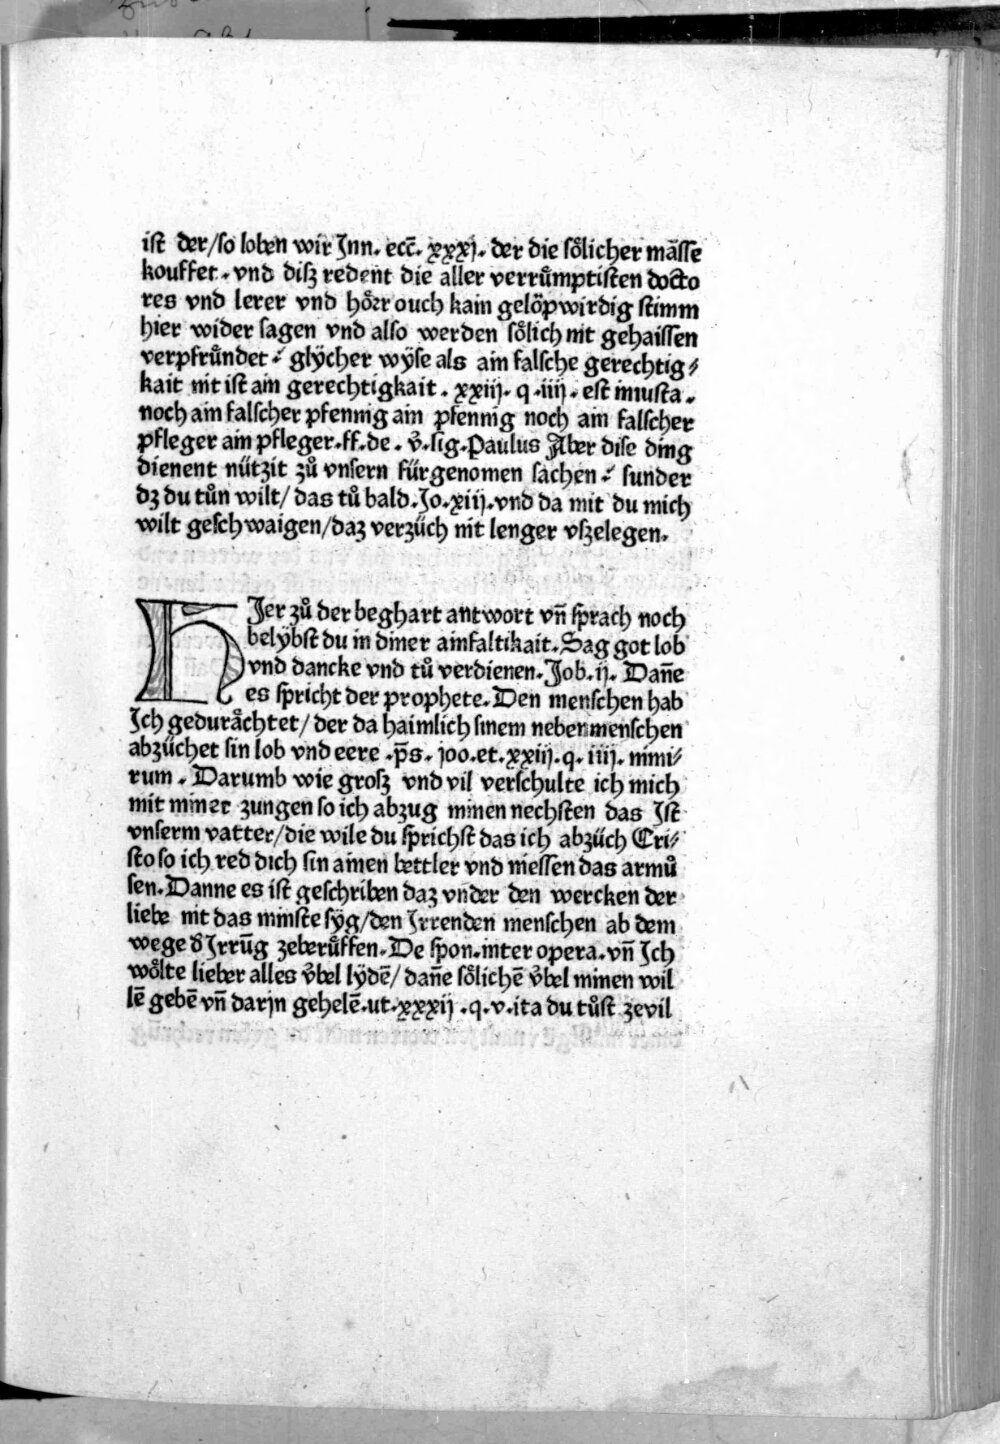 ist der/so loben wir Jnn. ecc̄. xxxj. der die soͤlicher māsse
kouffet. vnd disz redent die aller verruͤmptisten docto
res vnd lerer vnd hoͤrr ouch kain gelöpwirdig stimm
hier wider sagen vnd also werden soͤlich nit gehaissen
verpfruͤndet. glÿcher wÿse als ain falsche gerechtig⸗
kait nit ist ain gerechtigkait. xxiij. q. iiij. est iniusta.
noch ain falscher pfennig ain pfennig noch ain falscher
pfleger ain pfleger.ff.de. v̊.sig.Paulus Aber dise ding
dienent nützit zů vnsern fürgenomen sachen. sunder
dz du tůn wilt/ das tů bald.Jo.xiij.vnd da mit du mich
wilt geschwaigen/daz verzüch nit lenger vszelegen.
HJer zů der beghart antwort vn̄ sprach noch
belÿbst du in diner ainfaltikait. Sag got lob
vnd dancke vnd tů verdienen. Job.ij. Dan̄e
es spricht der prophete. Den menschen hab
Jch geduraͤchtet/ der da haimlich sinem nebenmenschen
abzüchet sin lob vnd eere .p̄s. joo.et.xxiij.q. iiij. nimi⸗
rum. Darumb wie grosz vnd vil verschulte ich mich
mit miner zungen so ich abzug minen nechsten das Jst
vnserm vatter/die wile du sprichst das ich abzüch Cri⸗
sto so ich red dich sin ainen bettler vnd niessen das armů
sen. Danne es ist geschriben daz vnder den wercken der
liebe nit das minste sÿg/den Jrrenden menschen ab dem
wege d̄ Jrrūg zeberuͤffen. De spon.inter opera. vn̄ Jch
woͤlte lieber alles v̊bel lÿdē/ dan̄e soͤlichē v̊bel minen wil
lē gebē vn̄ darjn gehelē.ut.xxxij .q.v.ita du tůst zevil